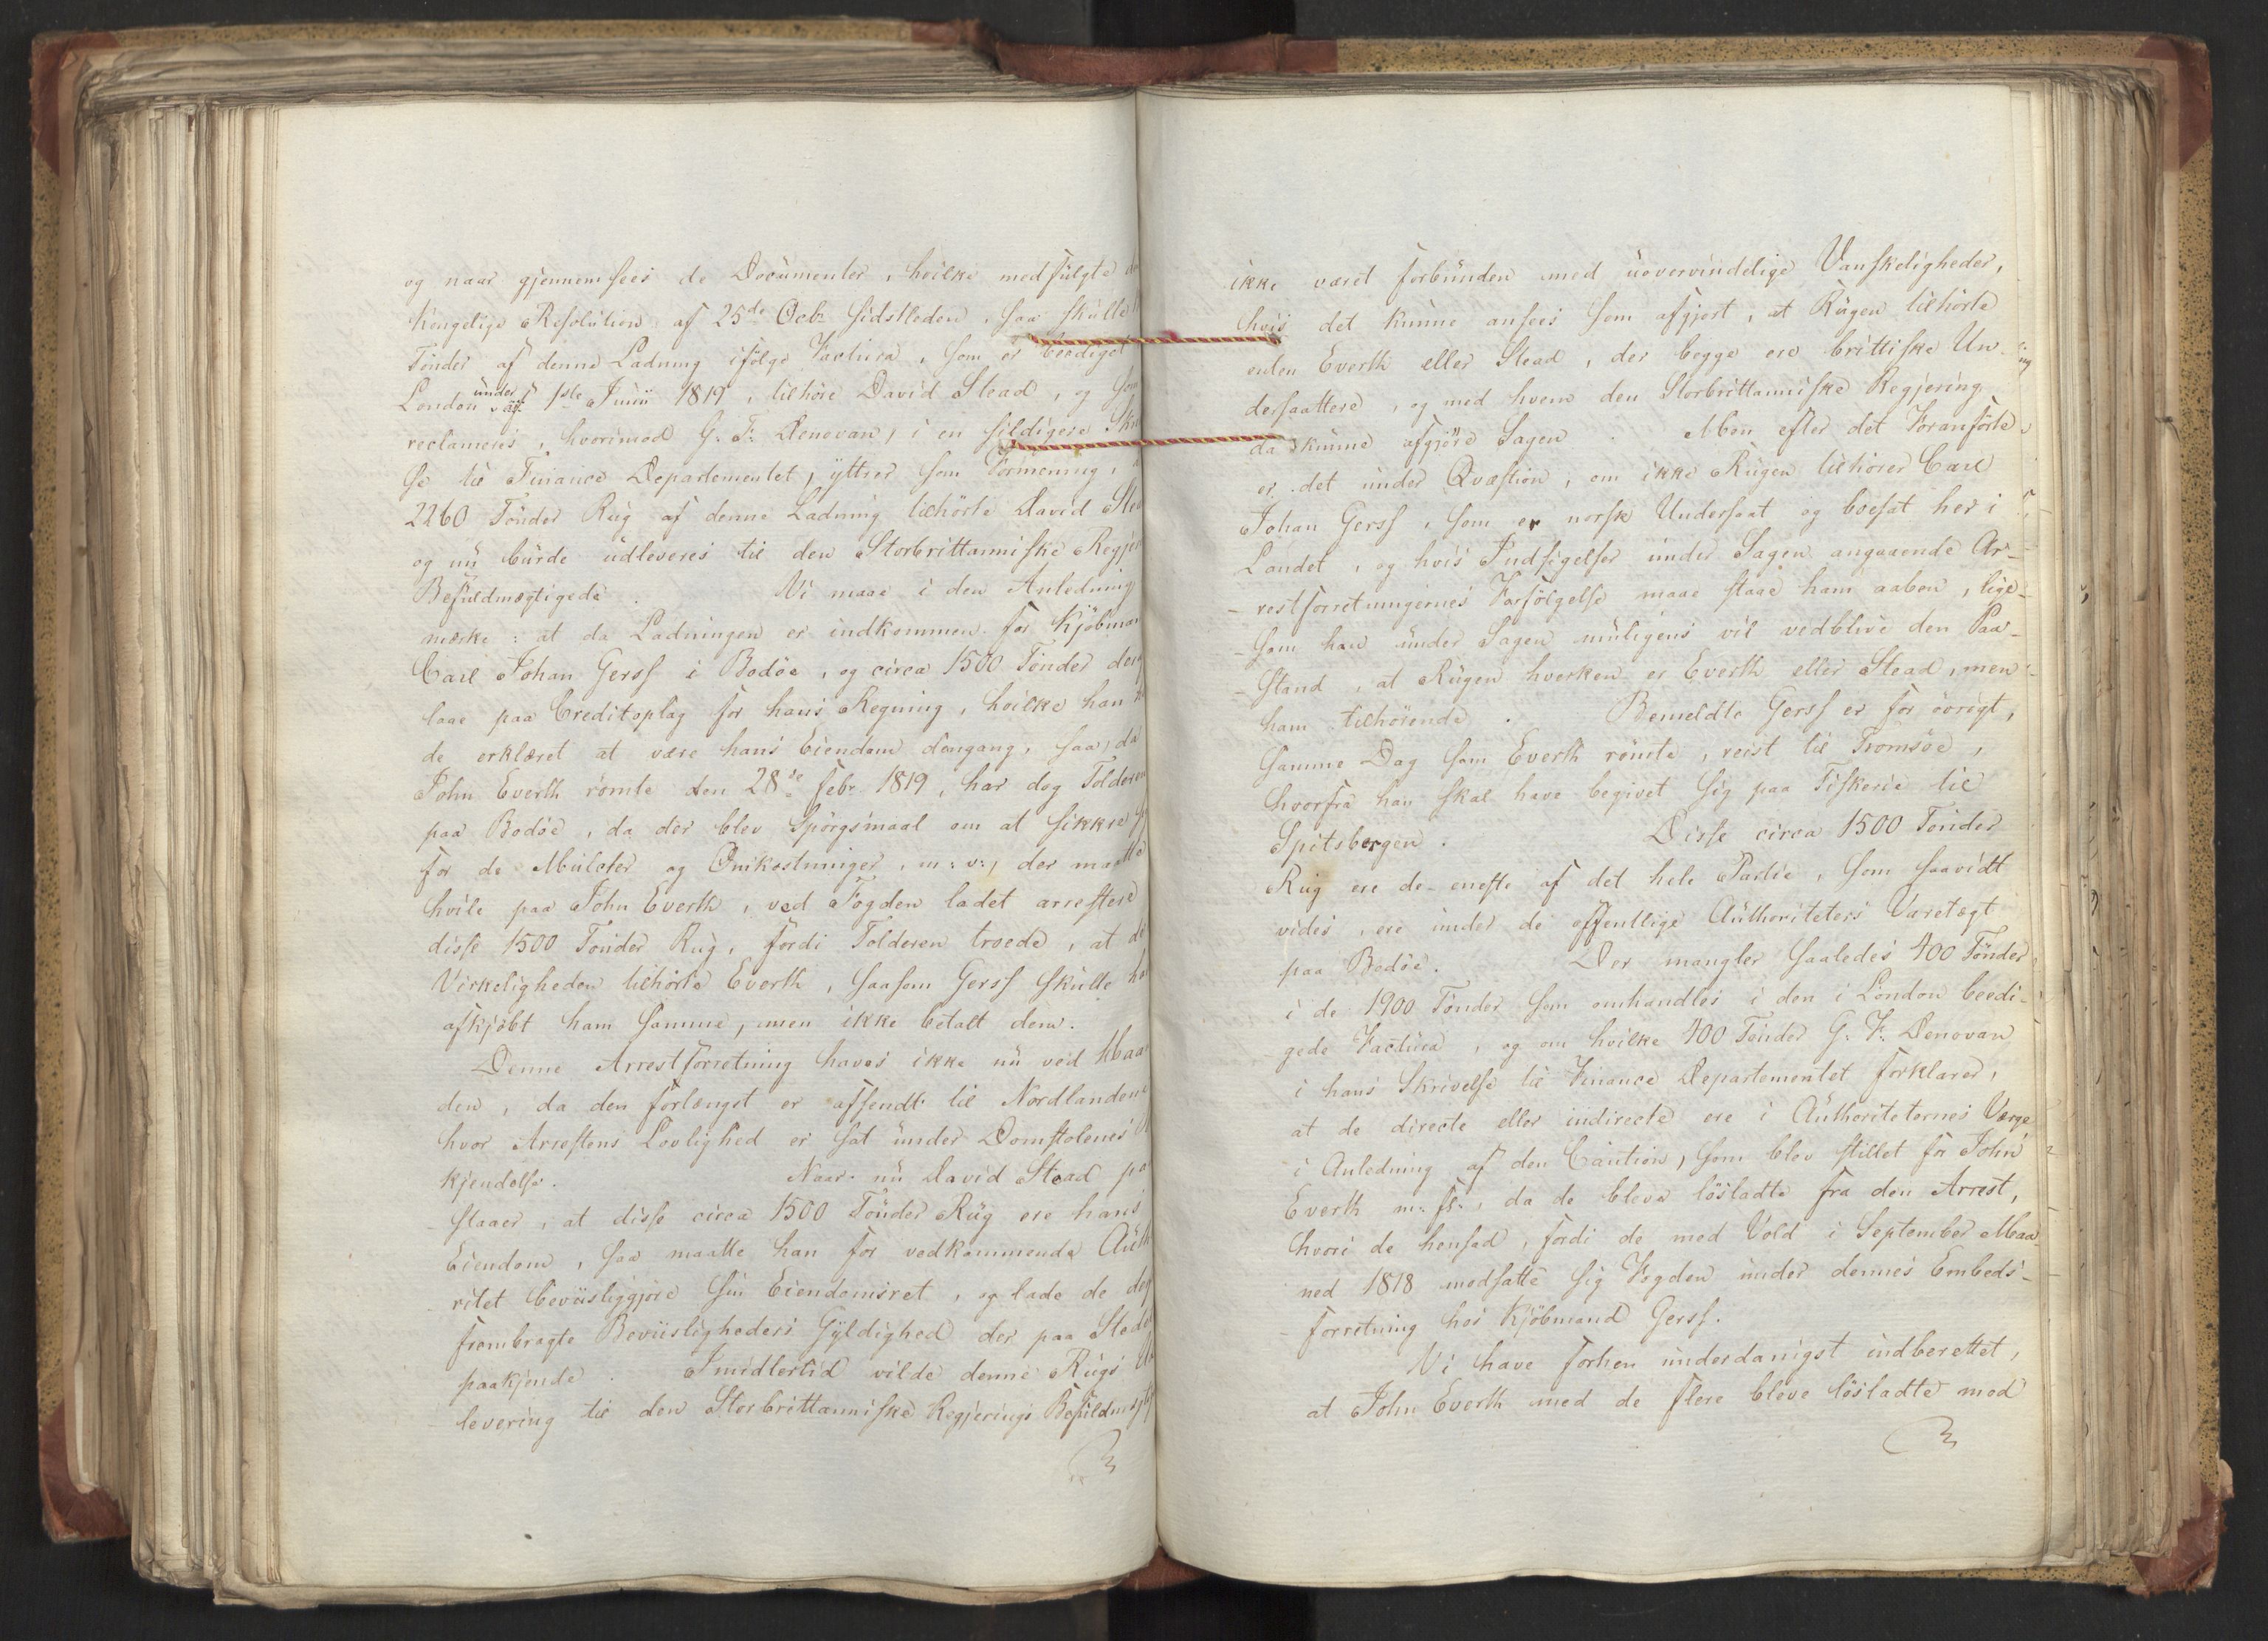 og naar gjennemsees de Documenter, hvilke medfulgte
kongelige Resolution af 25de Octbr sidstleden, saa skulle
Tønder af denne Ladning ifølge Factura, som er beediget
London under 1ste Junii 1819, tilhøre David Stead, og som
reclameres, hvorimod G. F. Denovan, i en sildigere
se til Finance Departementet, yttrer som Formening,
2260 Tønder Rug af denne Ladning tilhørte David
og nu burde udleveres til den Storbrittanniske
Befuldmægtigede. Vi maae i den Anledning
mærke: at da Ladningen er indkommen for
Carl Johan Gerss i Bodøe, og circa 1500 Tønder
laae paa Creditoplag for hans Regning, hvilke han
de erklæret at være hans Eiendom dengang, saa, da
John Everth rømte den 28de Febr 1819, har dog Tolderen
paa Bodøe, da der blev Spørgsmaal om at sikkre
for de Mulcter og Omkostninger, m: v:, der maatte
hvile paa John Everth, ved Fogden ladet arrestere
disse 1500 Tønder Rug, fordi Tolderen troede, at de
Virkeligheden tilhørte Everth, saasom Gerss skulle
afkjøbt ham samme, men ikke betalt dem.
Denne Arrestforretning haves ikke nu ved
den, da den forlængst er afsendt til Nordlandene
hvor Arrestens Lovlighed er sat under Domstolenes
kjendelse. Naar nu David Stead
staaer, at disse circa 1500 Tønder Rug ere hans
Eiendom, saa maatte han for vedkommende
ritet beviisliggjøre sin Eiendomsret, og lade de
frembragte Beviisligheders Gyldighed der paa Stedet
paakjende. Imidlertid vilde denne Rugs
levering til den Storbrittanniske Regjerings
ikke været forbunden med uovervindelige Vanskeligheder,
hvis det kunne ansees som afgjort, at Rugen tilhørte
enten Everth eller Stead, der begge ere brittiske Un-
dersaattere, og med hvem den Storbrittanniske Regjering
da kunne afgjøre Sagen. Men efter det Foranførte,
er det under Qvæstion, om ikke Rugen tilhører Carl
Johan Gerss, som er norsk Undersaat og boesat her i
Landet, og hvis Indsigelser under Sagen angaaende Ar-
restforretningernes Forfølgelse maae staae ham aaben, lige-
som han under Sagen muligens vil vedblive den Paa-
stand, at Rugen hverken er Everth eller Stead, men
ham tilhørende. Bemeldte Gerss er for øvrigt,
samme Dag som Everth rømte, reist til Tromsøe,
hvorfra han skal have begivet sig paa Fiskerie til
Spitsbergen. Disse circa 1500 Tønder
Rug ere de eneste af det hele Partie, som saavidt
vides, ere under de offentlige Authoriteters Varetægt
paa Bodøe. Der mangler saaledes 400 Tønder
i de 1900 Tønder som omhandles i den i London beedi-
gede Factura, og om hvilke 400 Tønder G. F. Denovan
i hans Skrivelse til Finance Departementet forklarer,
at de directe eller indirecte ere i Authoriteternes Værge
i Anledning af den Caution, som blev stillet for John
Everth m: fl:, da de bleve løsladte fra den Arrest,
hvori de hensad, fordi de med Vold i September Maa-
ned 1818 modsatte sig Fogden under dennes Embeds-
forretning hos Kjøbmand Gerss.
Vi have forhen underdanigst indberettet,
at John Everth med de flere bleve løsladte mod